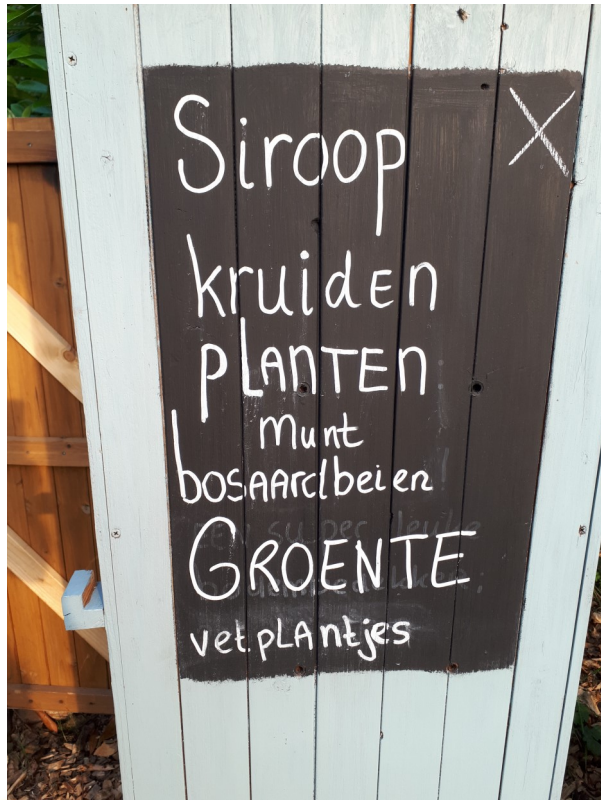 Siroop
kruiden
planten
munt
bosaardbeien
GROENTE
vetplantjes